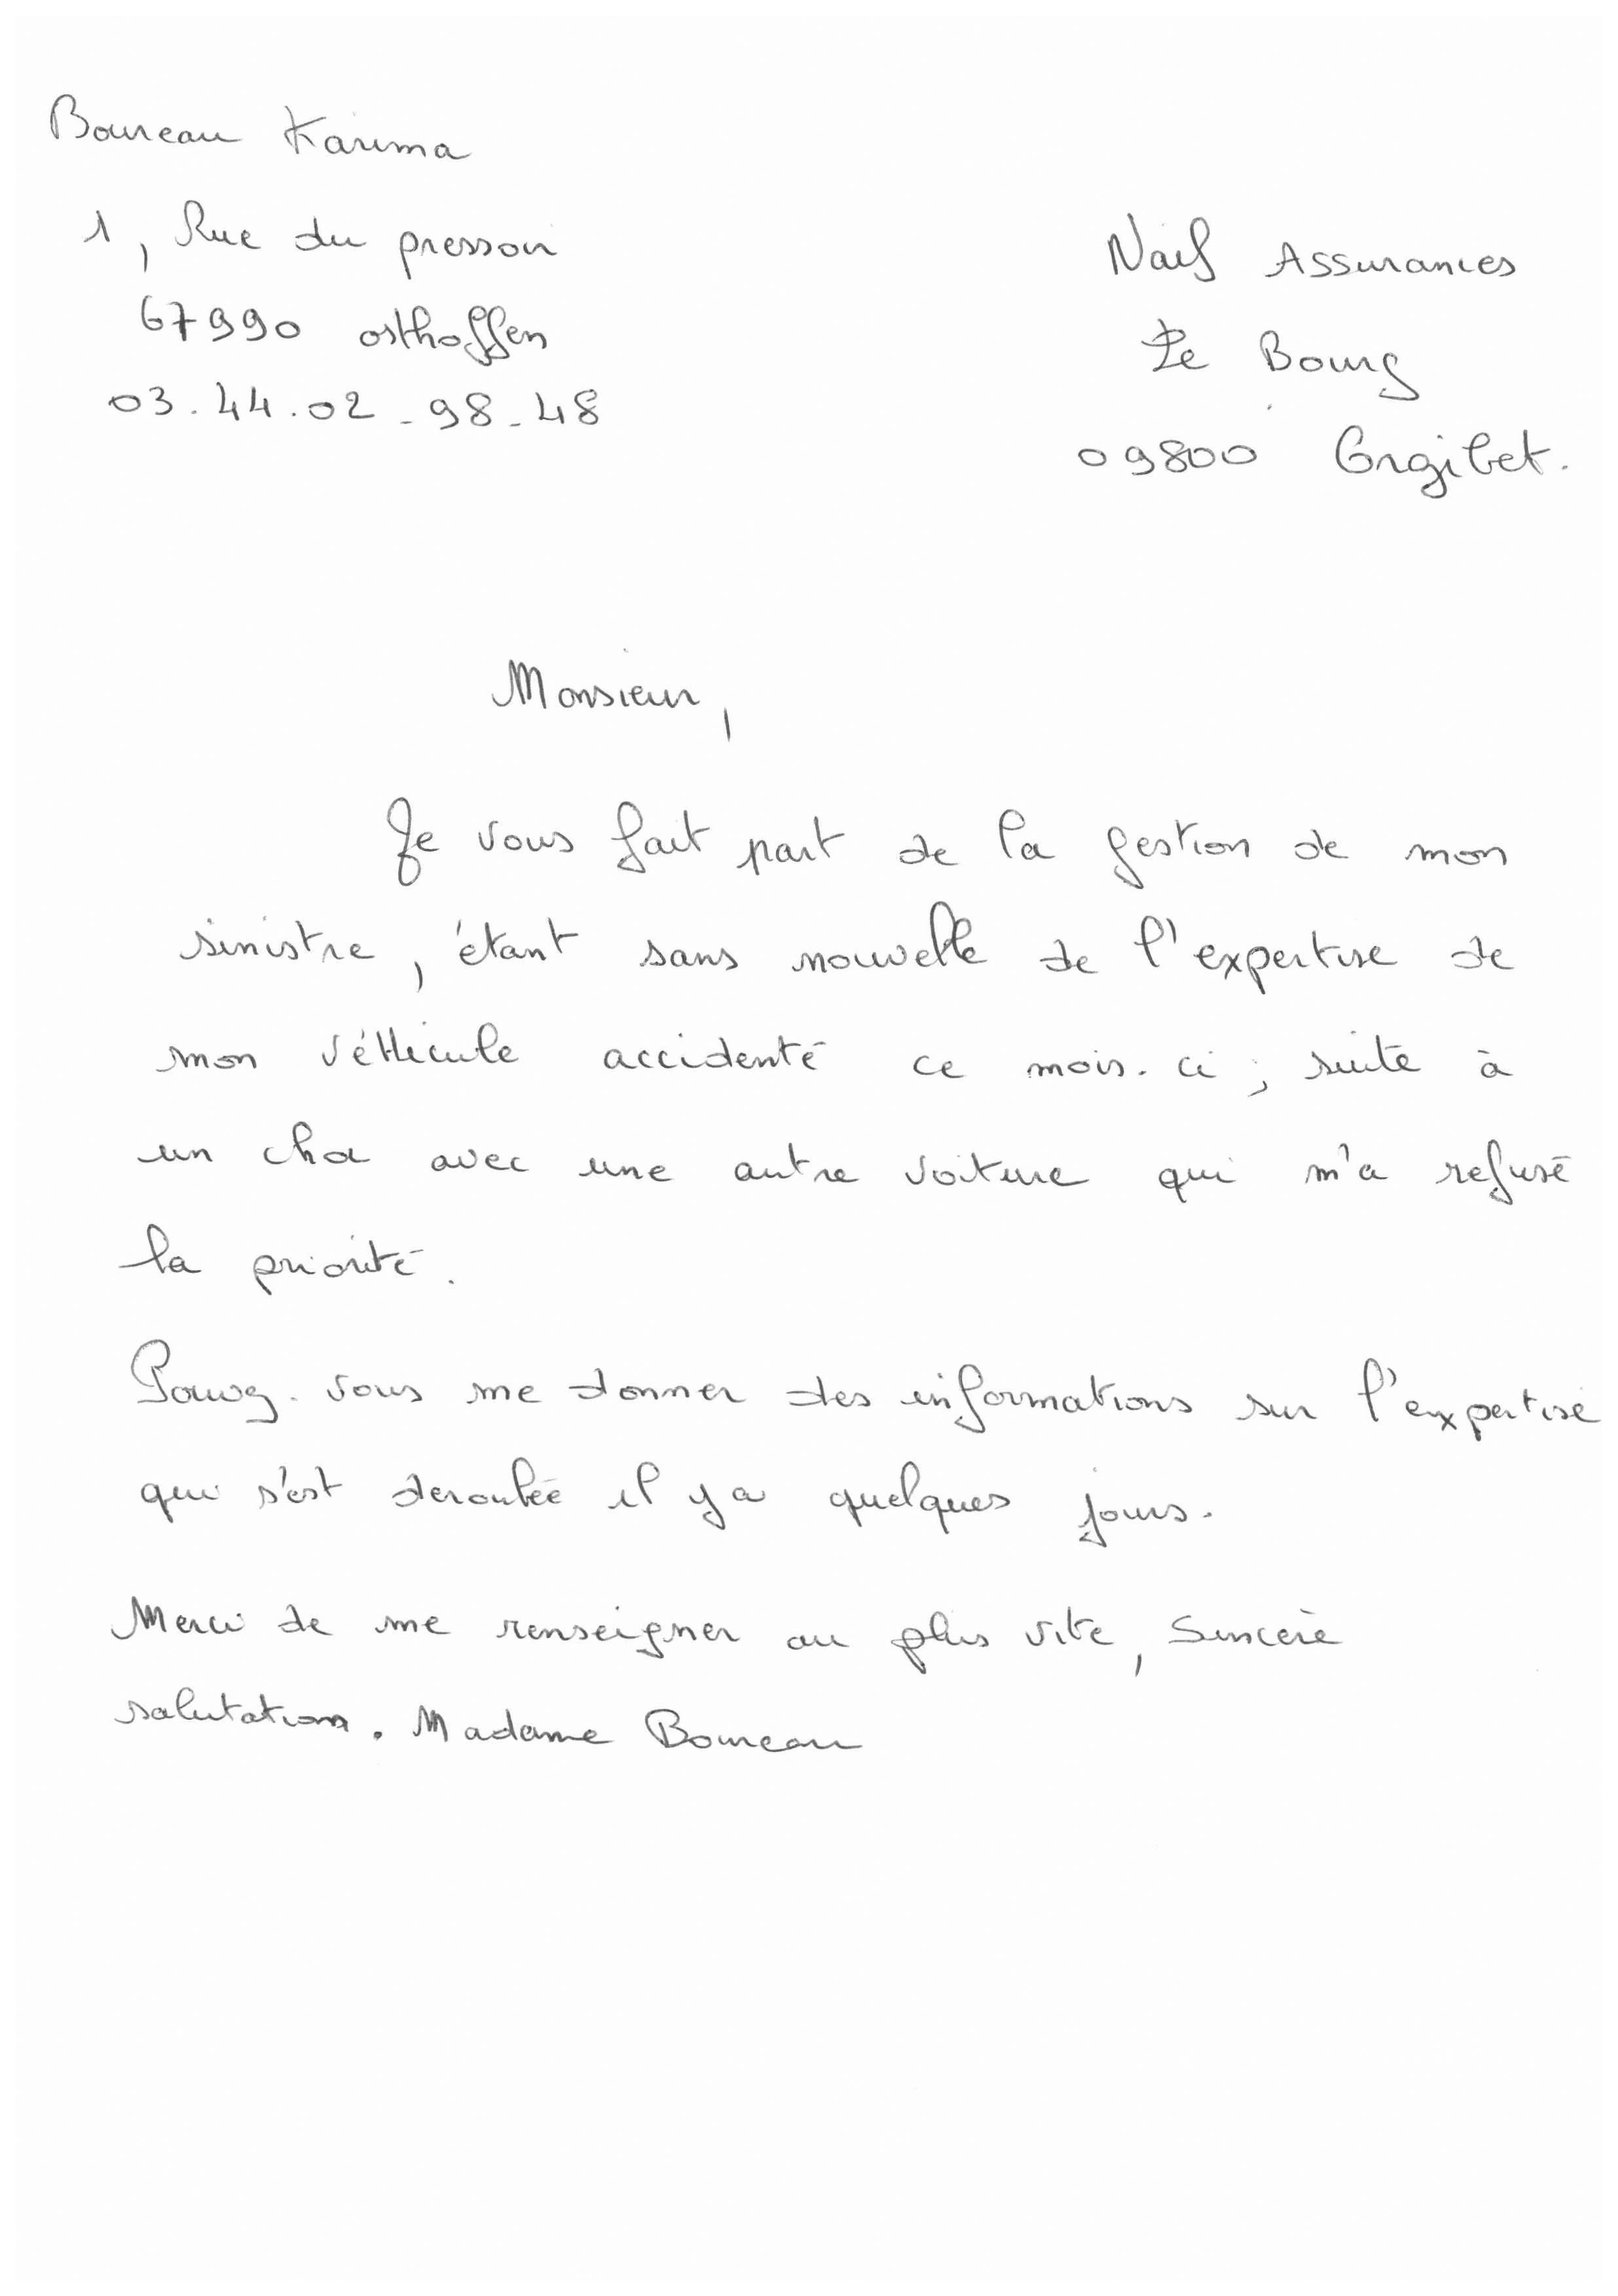 Boureau Karima
1, Rue du pressoir
67990 osthoffen
03.44.02-98-48
Naif Assurances
Le Bourg
09800 Orgibet.
Monsieur,
Je vous fait part de la gestion de mon
sinistre, étant sans nouvelle de l'expertise de
mon véhicule accidenté ce mois-ci; suite à
un choc avec une autre voiture qui m'a refusé
la priorité.
Pouvez-vous me donner des informations sur l'expertise
qui s'est deroulée il y a quelques jours.
Merci de me renseigner au plus vite, Sincère
salutations. Madame Boureau